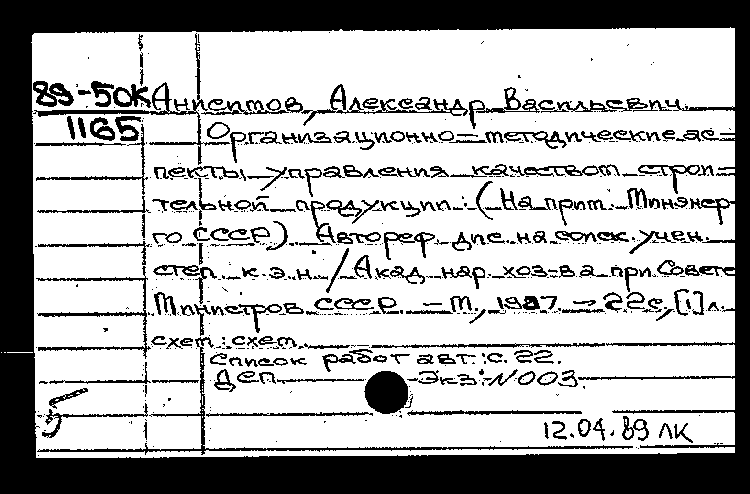 89-50К Анисимов, Александр Васильевич.
1165 Организационно=методические ас=
пекты управления качеством строи=
тельной продукции: (На прим. Минэнер-
го СССР) Автореф. дис. на соиск. учен.
степ. к.э.н. / Акад. нар. хоз-ва при Совете
Министров СССР. - М., 1987 - 22с, [1] л.
схем: схем.
Список работ авт.: с. 22.
Деп. Экз. N003.
5
12.04.89 ЛК